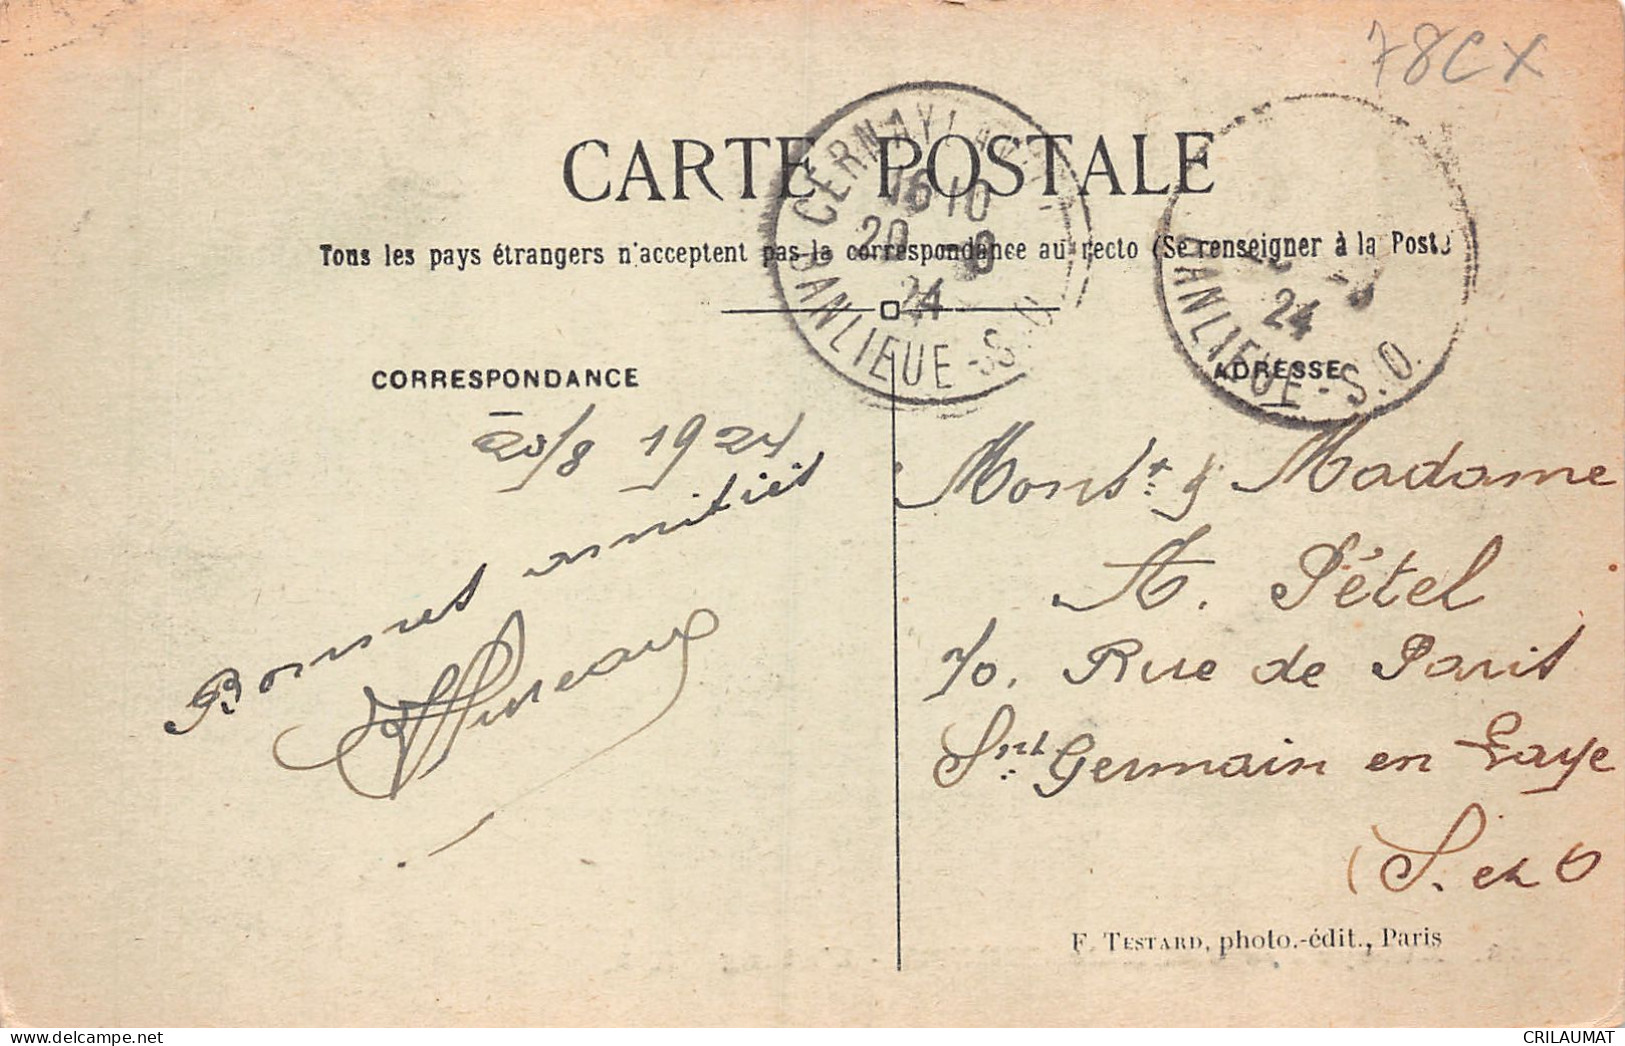 78CX
CARTE POSTALE
CERNAY LA VILLE
16 10
20 -8
24
BANLIEUE - S.O.
24
BANLIEUE - S.O.
Tous les pays étrangers n'acceptent pas la correspondance au recto (Se renseigner à la Poste
CORRESPONDANCE
20/8 1924
Bonnes amitiés
ADRESSE
Mons.r & Madame
A. Pétel
70. Rue de Paris
Snt Germain en Laye
(S. et O
F. TESTARD, photo.-édit., Paris
delcampe.net
CRILAUMAT